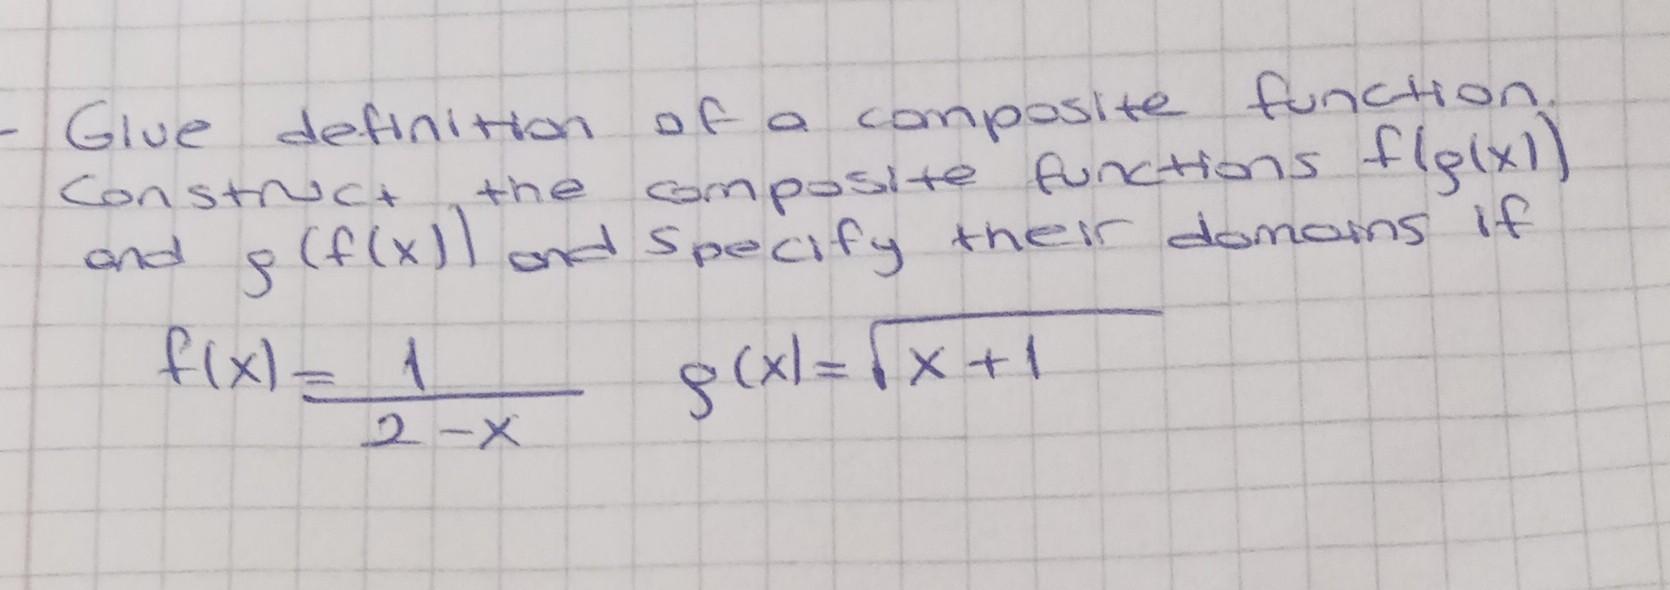 - Give definition of a composite function.
Construct the composite functions f(g(x))
and g(f(x)) and specify their domains if
f(x) = 1 / 2 - x    g(x) = √x + 1